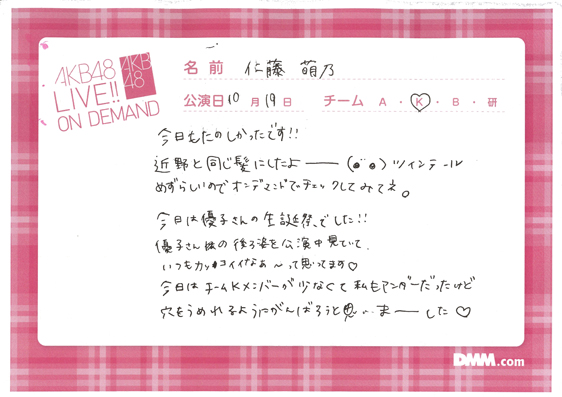 AKB48
LIVE!!
ON DEMAND
AKB
48
名前 佐藤 萌乃
公演日 10 月 19 日 チーム A ・ K ・ B ・ 研
今日もたのしかったです!!
近野と同じ髪にしたよー (๑¨๑) ツインテール
めずらしいのでオンデマンドでチェックしてみてネ。
今日は優子さんの生誕祭でした!!
優子さん の後ろ姿を公演中見ていて、
いつもカッコイイなぁ〜って思ってます♡
今日はチームKメンバーが少なくて私もアンダーだったけど
穴をうめれるようにがんばろうと思いまーした♡
DMM.com